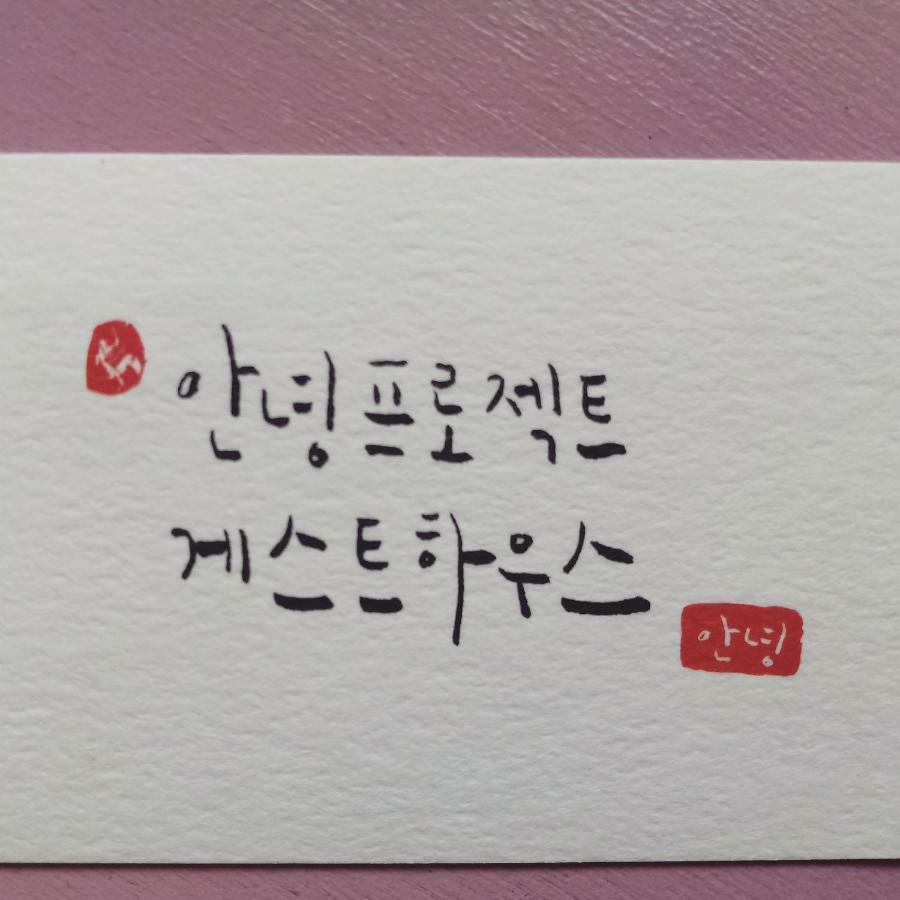 안녕프로젝트
게스트하우스
안녕